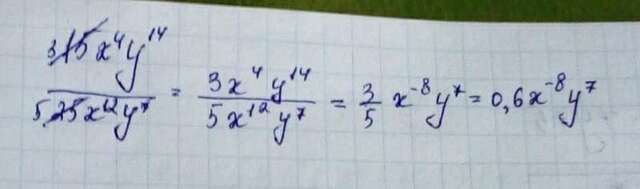 \frac{3 \cancel{15}x^4y^{14}}{5 \cancel{25}x^{12}y^7} = \frac{3x^4y^{14}}{5x^{12}y^7} = \frac{3}{5} x^{-8}y^7 = 0,6x^{-8}y^7